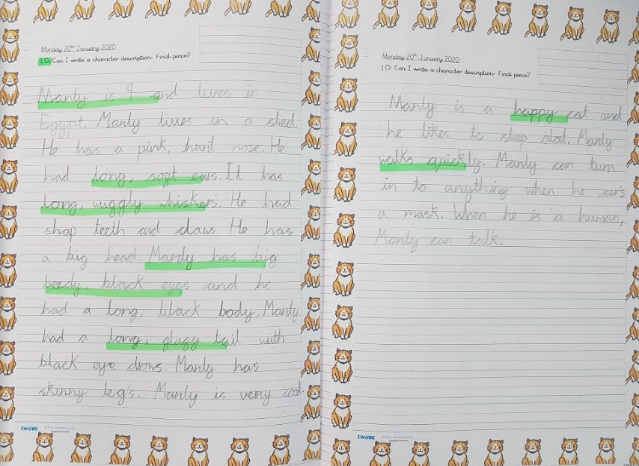 Monday 20th January 2020
L.O: Can I write a character description- Final piece?
Manly is 9 and lives in
Egypt. Manly lives in a shed.
He has a pink, hard nose. He
had long, sogt ears. It has
long, wiggly whiskers. He had
shap teeth and claws. He has
a big head. Manly has big
beedy, black eyes and he
had a long, black body. Manly
had a long, gluggy tail with
black eye drows. Manly has
skinny leg's. Manly is very cool.
TWINKL
Monday 20th January 2020
L.O: Can I write a character description- Final piece?
Manly is a happy cat and
he likes to sleep alot. Manly
walks quickly. Manly can turn
in to anything when he wear's
a mask. When he is a human,
Manly can talk.